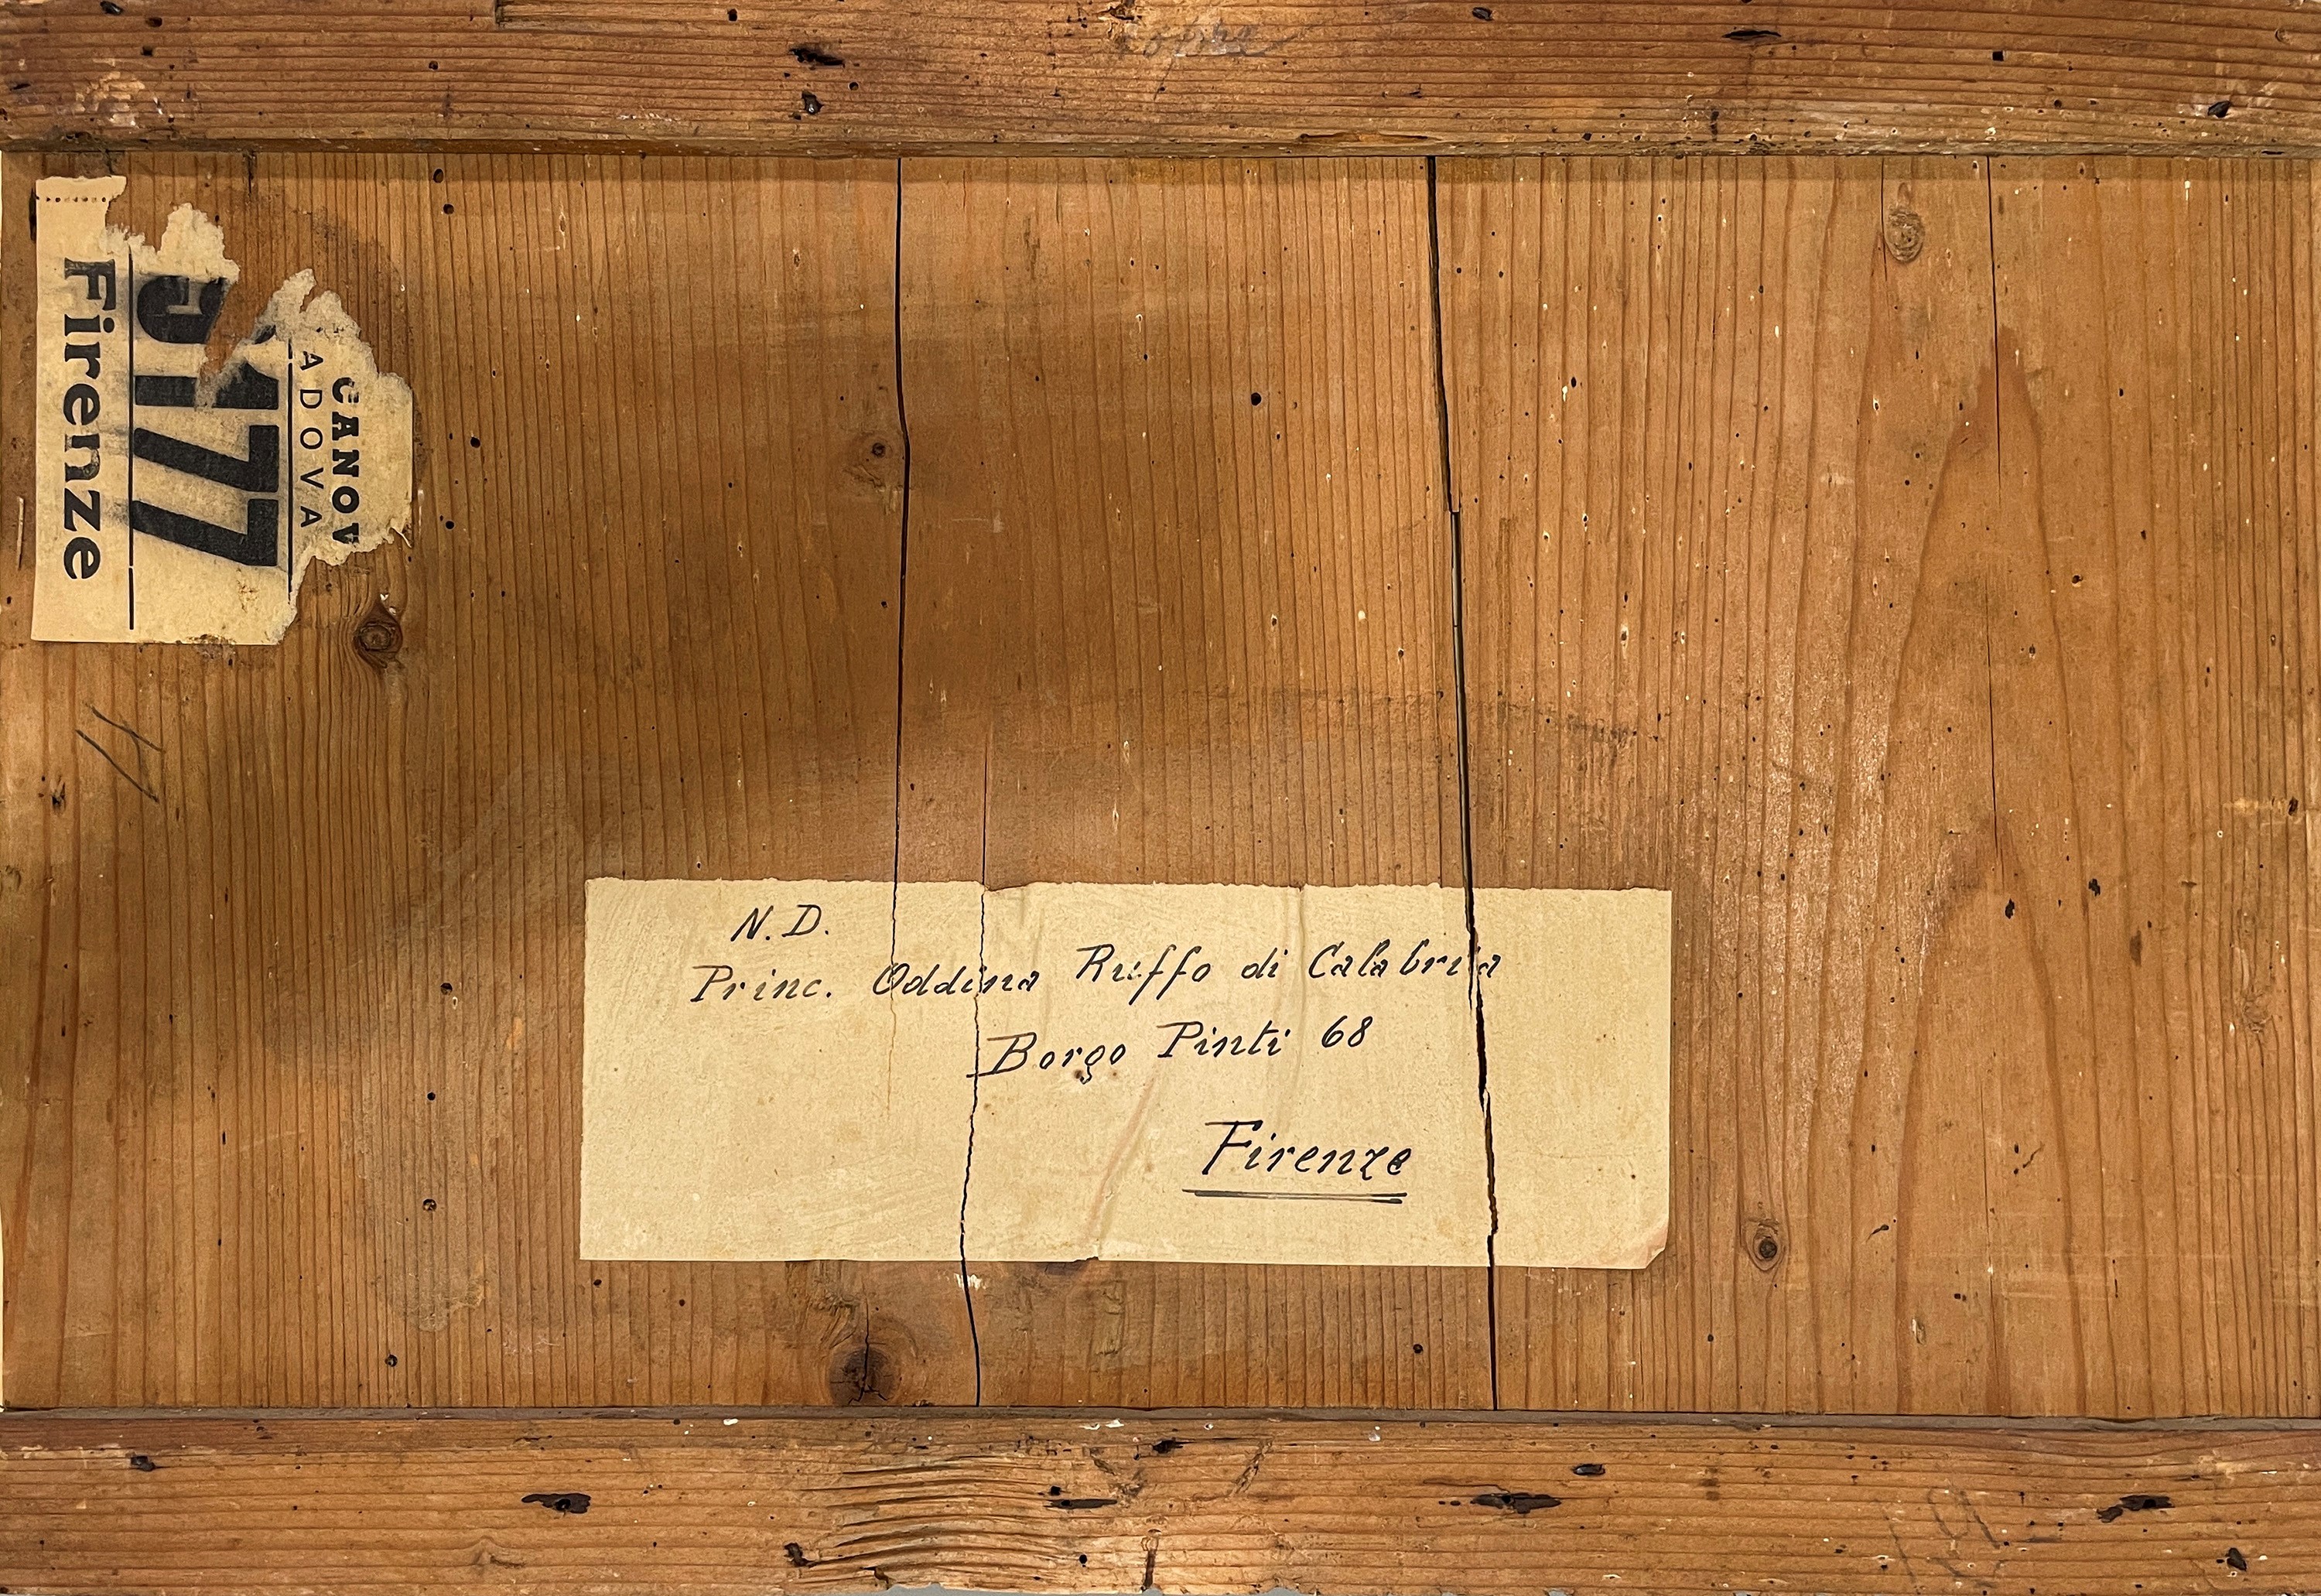 CANOV
ADOVA
177
Firenze
N.D.
Princ. Oddina Ruffo di Calabria
Borgo Pinti 68
Firenze